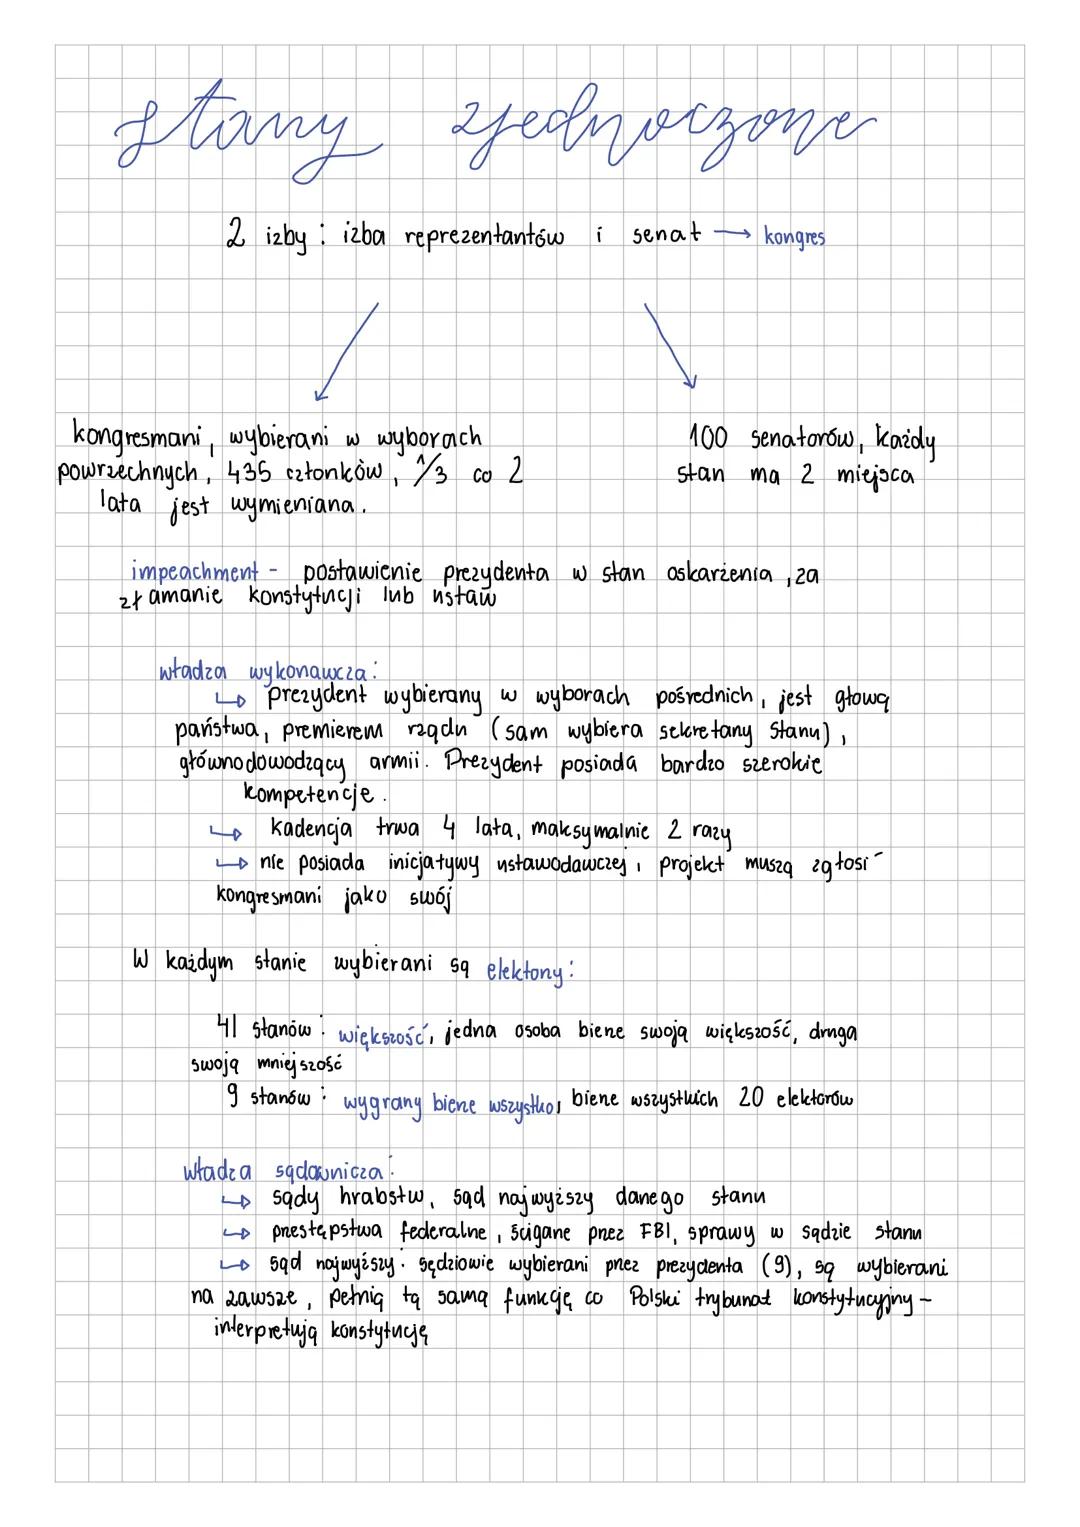 stany zjednoczone
2 izby : izba reprezentantów i senat → kongres
kongresmani, wybierani w wyborach
powrzechnych, 435 członków, 1/3 co 2
lata jest wymieniana.
100 senatorów, każdy
stan ma 2 miejsca
impeachment - postawienie prezydenta w stan oskarżenia, za
złamanie konstytucji lub ustaw
władza wykonawcza:
↳ prezydent wybierany w wyborach pośrednich, jest głową
państwa, premierem rządu (sam wybiera sekretarzy stanu),
głównodowodzący armii. Prezydent posiada bardzo szerokie
kompetencje.
↳ kadencja trwa 4 lata, maksymalnie 2 razy
↳ nie posiada inicjatywy ustawodawczej, projekt muszą zgłosić
kongresmani jako swój
W każdym stanie wybierani są elektorzy:
41 stanów : większość, jedna osoba bierze swoją większość, druga
swoją mniejszość
9 stanów : wygrany bierze wszystko, bierze wszystkich 20 elektorów
władza sądownicza:
↳ sądy hrabstw, sąd najwyższy danego stanu
↳ przestępstwa federalne, ścigane przez FBI, sprawy w sądzie stanu
↳ sąd najwyższy: sędziowie wybierani przez prezydenta (9), są wybierani
na zawsze, pełnią tą samą funkcję co Polski trybunał konstytucyjny -
interpretują konstytucję